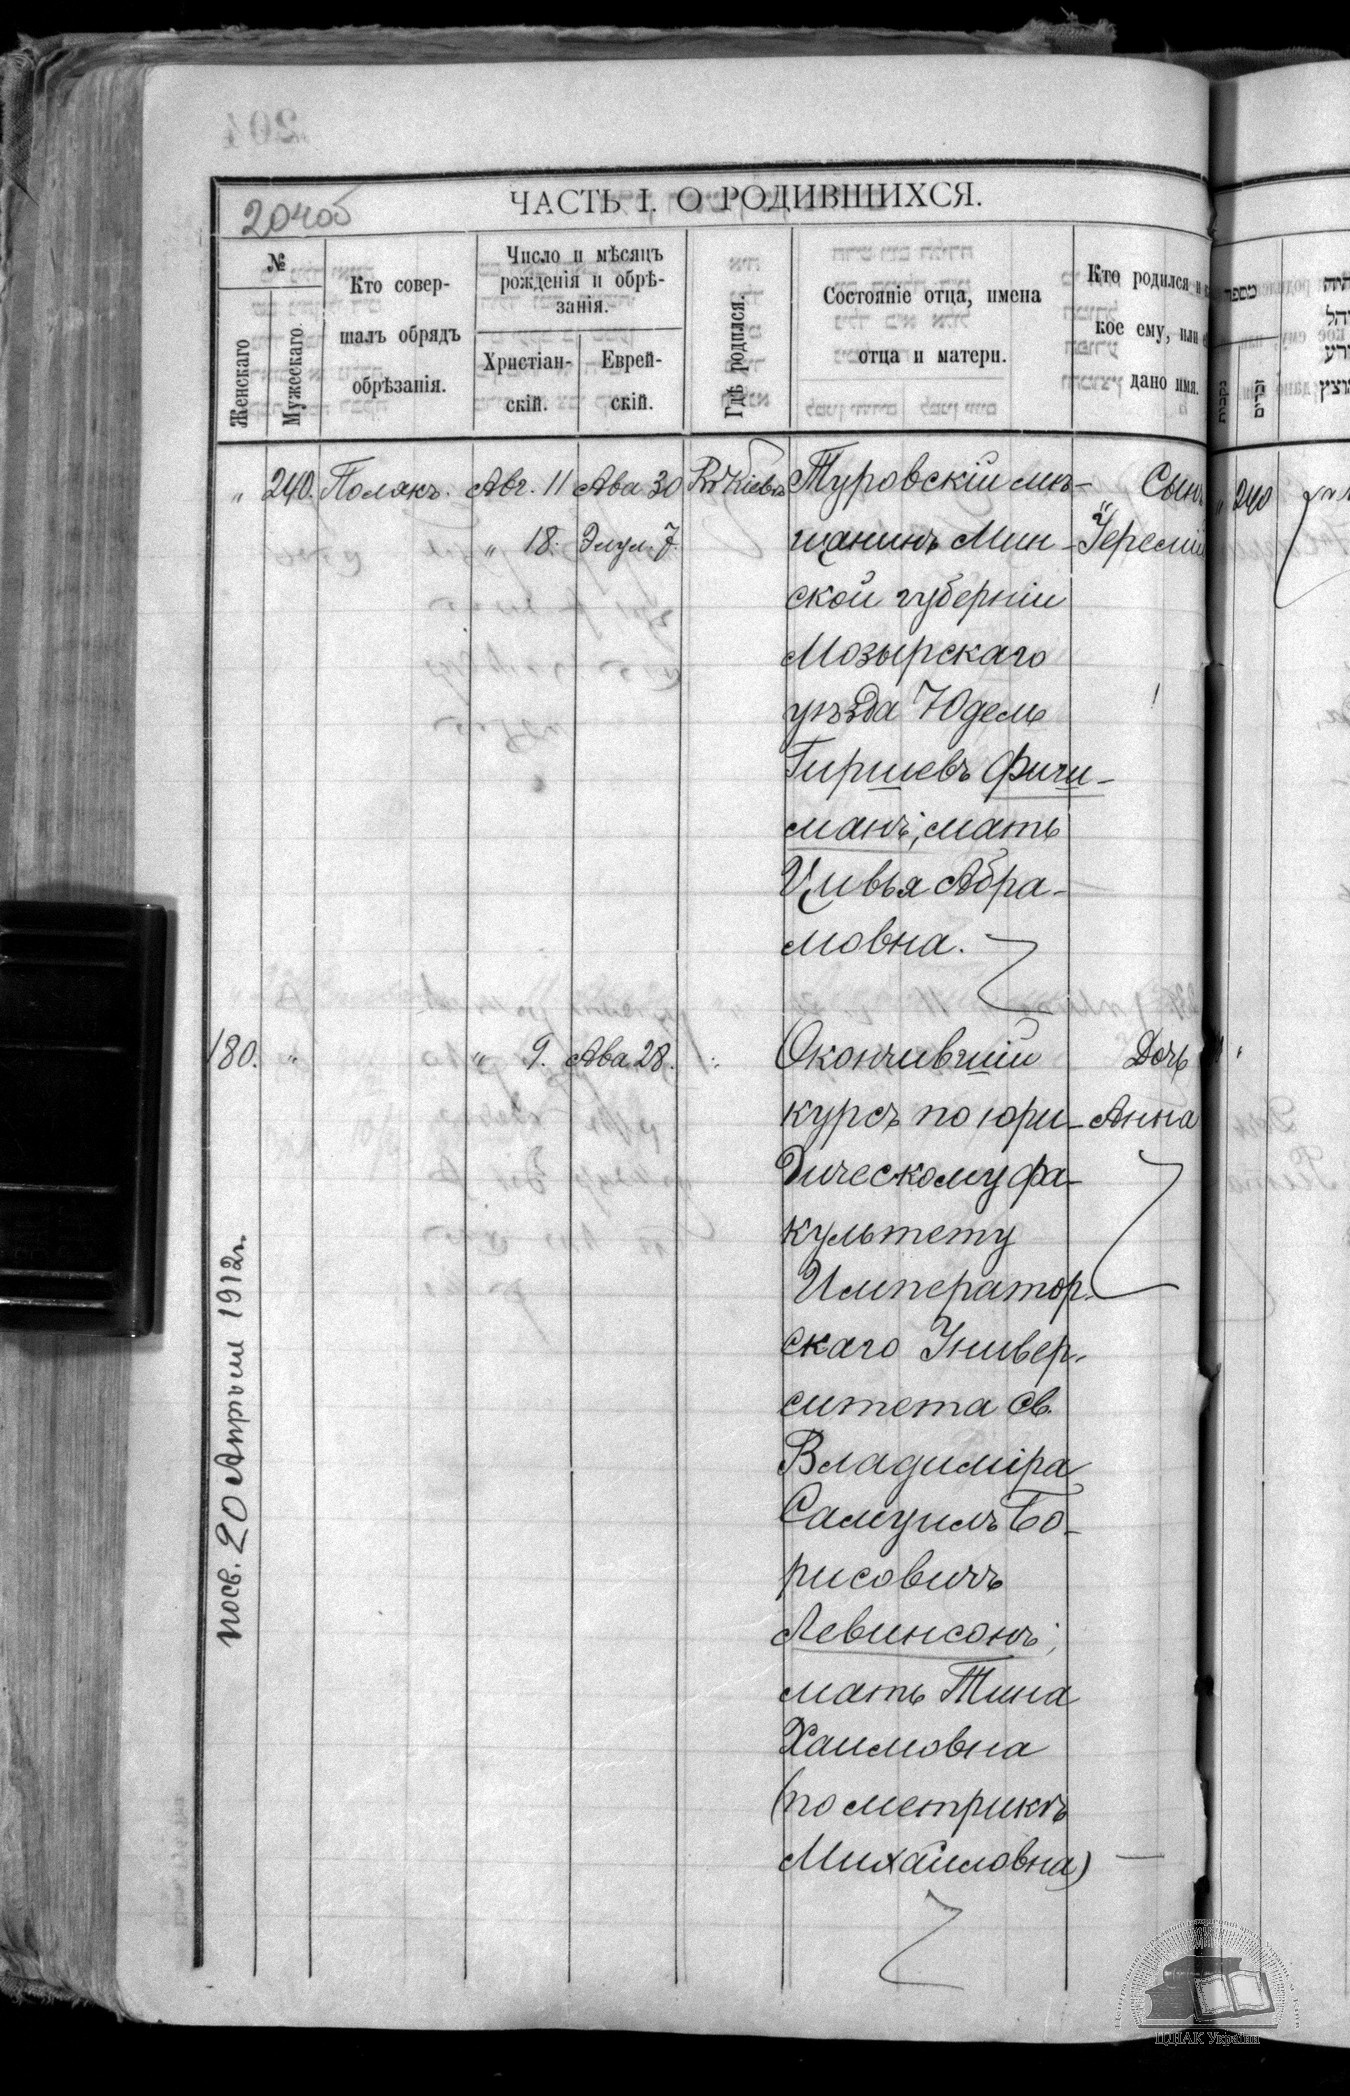 204об
ЧАСТЬ I. О РОДИВШИХСЯ.
№
Женскаго
Мужескаго.
Кто совер-
шалъ обрядъ
обрѣзанія.
Число и мѣсяцъ
рожденія и обрѣ-
занія.
Христіан-
скій.
Еврей-
скій.
Гдѣ родился.
Состояніе отца, имена
отца и матери.
Кто родился и
кое ему, или
дано имя.
" 240. Полякъ. Авг. 11 Ава 30 Въ Кіевѣ Туровскій мѣ- Сынъ
" 18. Элул. 7. щанинъ Мин-
ской губерніи
Мозырскаго
уѣзда Юдель
Гиршевъ Фиш-
манъ, мать
Цивья Абра-
мовна.
180. " " 9. Ава 28. Окончившій Дочь
курсъ по юри- Анна
дическому фа-
культету
Император-
скаго Универ-
ситета Св.
Владиміра
Самуилъ Бо-
рисовичъ
Левинсонъ,
мать Тина
Хаимовна
(по метрикѣ
Михайловна)
посв. 20 Апрѣля 1912г.
240
ЦДІАК України